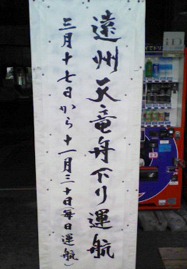 遠州天竜舟下り運航
三月十七日から十一月三十日毎日運航)